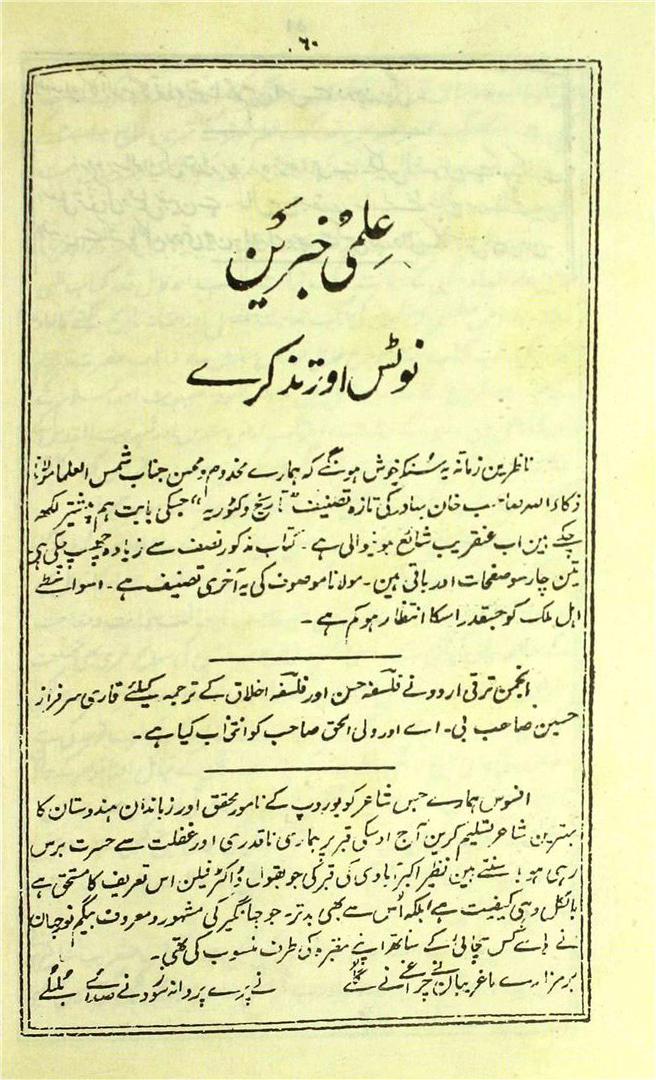 ۶۰
علمی خبرین
نوٹس اور تذکرے
ناظرین زمانہ یہ سُنکر خوش ہونگے کہ ہمارے مخدوم و محسن جناب شمس العلما مولانا
ذکاء اللہ صاحب خان بہادر کی تازہ تصنیف "تاریخ وکٹوریہ" جسکی بابت ہم پیشتر لکھ
چکے ہین اب عنقریب شائع ہونیوالی ہے۔ کتاب مذکور نصف سے زیادہ چھپ چکی ہی
تین چار سو صفحات اور باقی ہین۔ مولانا موصوف کی یہ آخری تصنیف ہے۔ اسواسطے
اہل ملک کو جسقدر اسکا انتظار ہو کم ہے۔
انجمن ترقی اردو نے فلسفہ حسن اور فلسفہ اخلاق کے ترجمہ کیلئے قاری سرفراز
حسین صاحب بی۔ اے اور ولی الحق صاحب کو انتخاب کیا ہے۔
افسوس ہمارے جس شاعر کو یوروپ کے نامور محقق اور زباندان ہندوستان کا
بہترین شاعر تسلیم کرین آج اوسکی قبر پر ہماری ناقدری اور غفلت سے حسرت برس
رہی ہو! سنتے ہین نظیر اکبرآبادی کی قبر کی جو بقول ڈاکٹر فیلن اس تعریف کا مستحق ہے
بالکل وہی کیفیت ہے بلکہ اُس سے بھی بدتر۔ جو جہانگیر کی مشہور و معروف بیگم نورجہان
نے ہاے کس سچائی کے ساتھ اپنے مقبرہ کی طرف منسوب کی تھی۔
برمزار ما غریبان نے چراغے نے گلے نے پرے پروانہ سوزد نے صداے بلبلے